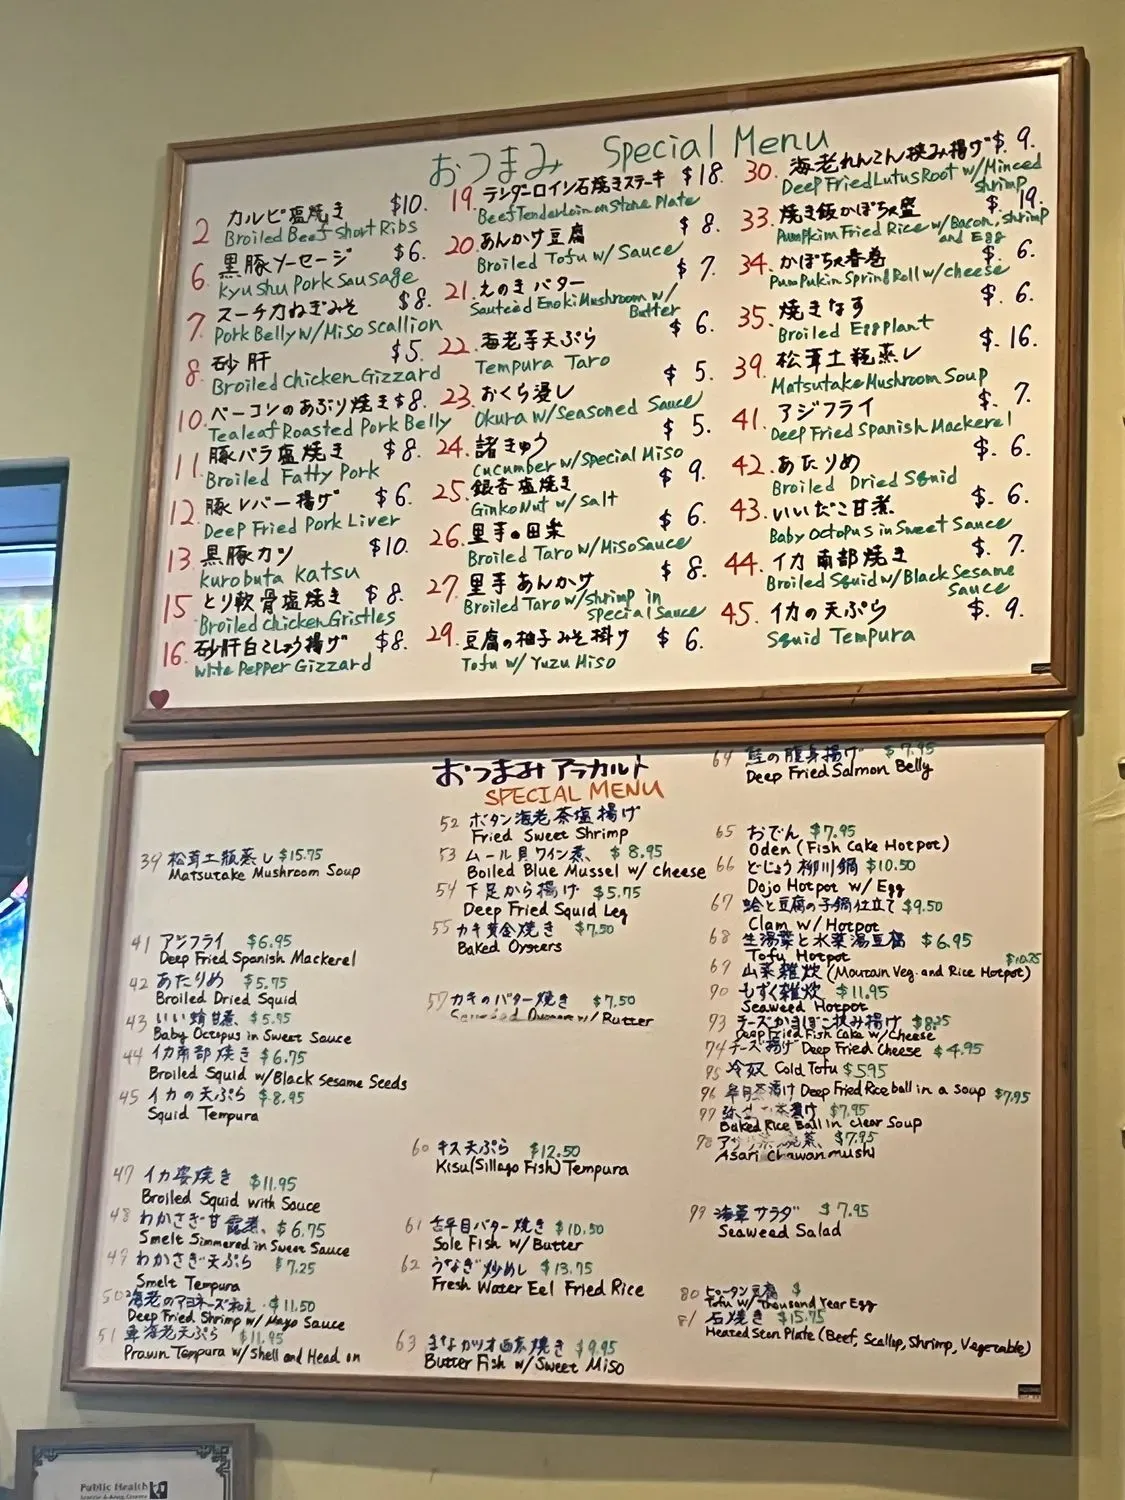 おつまみ Special Menu
2 カルビ塩焼き $10.
Broiled Beef Short Ribs
6. 黒豚ソーセージ $6.
Kyushu Pork Sausage
7. スーチカねぎみそ $8.
Pork Belly w/Miso Scallion
8. 砂肝 $5.
Broiled Chicken Gizzard
10. ベーコンのあぶり焼き $8.
Tealeaf Roasted Pork Belly
11. 豚バラ塩焼き $8.
Broiled Fatty Pork
12. 豚レバー揚げ $6.
Deep Fried Pork Liver
13. 黒豚カツ $10.
Kurobuta Katsu
15 とり軟骨塩焼き $8.
Broiled Chicken Gristles
16. 砂肝白こしょう揚げ $8.
White Pepper Gizzard
19. テンダーロイン石焼きステーキ $18.
Beef Tenderloin on Stone Plate
20. あんかけ豆腐 $8.
Broiled Tofu w/ Sauce
21. えのきバター $7.
Sauteed Enoki Mushroom w/
Butter
22. 海老芋天ぷら $6.
Tempura Taro
23. おくら浸し $5.
Okura w/Seasoned Sauce
24. 諸きゅう $5.
Cucumber w/Special Miso
25. 銀杏塩焼き $9.
Ginko Nut w/ Salt
26. 里芋の田楽 $6.
Broiled Taro w/Miso Sauce
27. 里芋あんかけ $8.
Broiled Taro w/Shrimp in
Special Sauce
29. 豆腐の柚子みそ掛け $6.
Tofu w/ Yuzu Miso
30. 海老れんこん挟み揚げ $. 9.
Deep Fried Lutus Root w/Minced
Shrimp
33. 焼き飯かぼちゃ盛 $. 19.
Pumpkim Fried Rice w/Bacon, shrimp
and Egg
34. かぼちゃ春巻 $. 6.
PumPukin Spring Roll w/cheese
35. 焼きなす $. 6.
Broiled Eggplant
39. 松茸土瓶蒸し $. 16.
Matsutake Mushroom Soup
41. アジフライ $. 7.
Deep Fried Spanish Mackerel
42. あたりめ $. 6.
Broiled Dried Squid
43. いいだこ甘煮 $. 6.
Baby Octopus in Sweet Sauce
44. イカ南部焼き $. 7.
Broiled Squid w/Black Sesame
Sauce
45. イカの天ぷら $. 9.
Squid Tempura
おつまみ アラカルト
SPECIAL MENU
39 松茸土瓶蒸し $15.75
Matsutake Mushroom Soup
41 アジフライ $6.95
Deep Fried Spanish Mackerel
42 あたりめ $5.75
Broiled Dried Squid
43 いい蛸甘煮 $5.95
Baby Octopus in Sweet Sauce
44 イカ南部焼き $6.75
Broiled Squid w/Black Sesame Seeds
45 イカの天ぷら $8.95
Squid Tempura
47 イカ姿焼き $11.95
Broiled Squid with Sauce
48 わかさぎ甘露煮 $6.75
Smelt Simmered in Sweet Sauce
49 わかさぎ天ぷら $7.25
Smelt Tempura
50 海老のマヨネーズ和え $11.50
Deep Fried Shrimp w/ Mayo Sauce
51 車海老天ぷら $11.95
Prawn Tempura w/Shell and Head on
52 ボタン海老茶塩揚げ
Fried Sweet Shrimp
53 ムール貝ワイン煮 $8.95
Boiled Blue Mussel w/ cheese
54 下足から揚げ $5.75
Deep Fried Squid Leg
55 カキ黄金焼き $7.50
Baked Oysters
57 カキのバター焼き $7.50
w/ Butter
60 キス天ぷら $12.50
Kisu(Sillago Fish) Tempura
61 舌平目バター焼き $10.50
Sole Fish w/Butter
62 うなぎ炒めし $13.75
Fresh Water Eel Fried Rice
63 まながつオ西京焼き $9.95
Butter Fish w/Sweet Miso
64 鮭の腹身揚げ $7.95
Deep Fried Salmon Belly
65 おでん $7.95
Oden (Fish Cake Hotpot)
66 どじょう柳川鍋 $10.50
Dojo Hotpot w/ Egg
67 蛤と豆腐の子鍋仕立て $9.50
Clam w/ Hotpot
68 生湯葉と水菜湯豆腐 $6.95
Tofu Hotpot
69 山菜雑炊 (Mountain Veg. and Rice Hotpot) $10.25
90 もずく雑炊 $11.95
Seaweed Hotpot
93 チーズかまぼこ挟み揚げ $8.25
Deep Fried Fish Cake w/Cheese
74 チーズ揚げ Deep Fried Cheese $4.95
95 冷奴 Cold Tofu $5.95
96 茶漬け Deep Fried Rice ball in a Soup $7.95
97 茶漬け $7.95
Baked Rice Ball in clear Soup
98 $7.95
Asari Chawanmushi
99 海草サラダ $7.95
Seaweed Salad
80 ピータン豆腐 $
Tofu w/ Thousand Year Egg
81 石焼き $15.75
Heated Ston Plate (Beef, Scallop, Shrimp, Vegetable)
Public Health